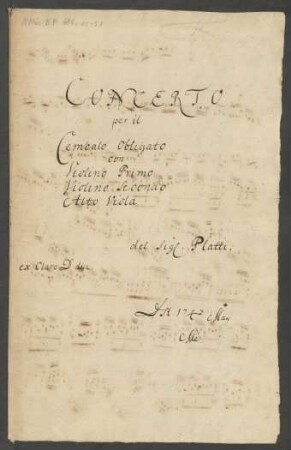 CONCERTO
per il
Cembalo Obligato
con
Violino Primo
Violino Secondo
Alto Viola
del Sigl. Platti.
ex Clave D dur
1740